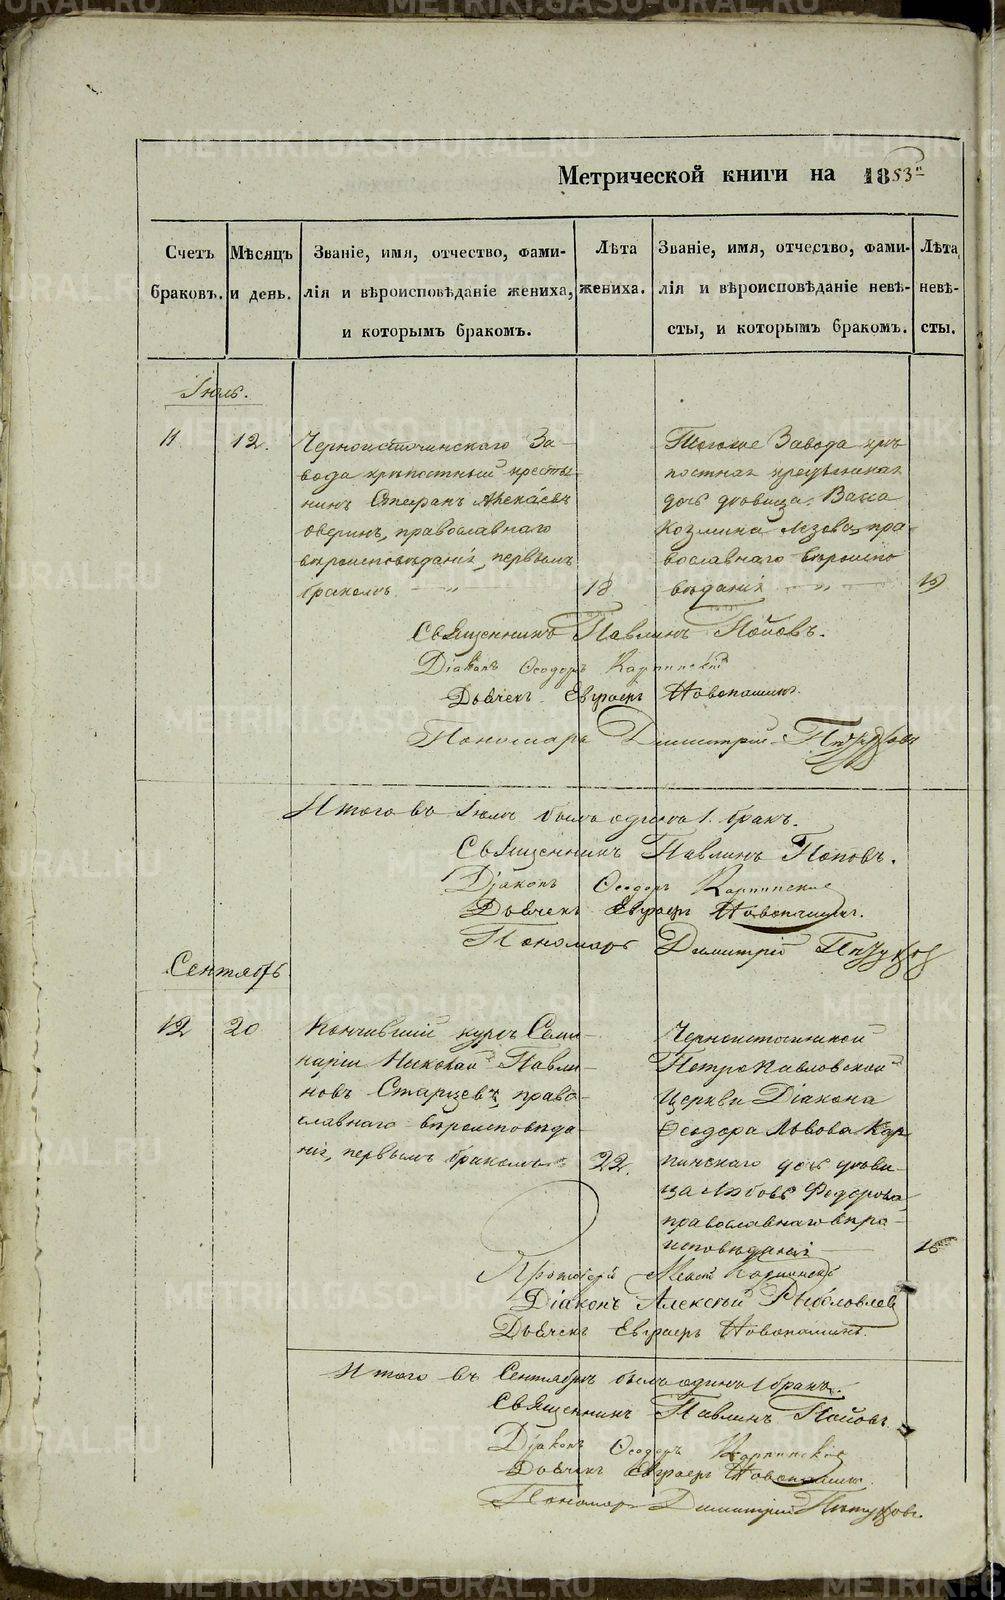 Метрической книги на 1853й
Счетъ браковъ.
Мѣсяцъ и день.
Званіе, имя, отчество, фами-
лія и вѣроисповѣданіе жениха,
и которымъ бракомъ.
Лѣта жениха.
Званіе, имя, отчество, фами-
лія и вѣроисповѣданіе невѣ-
сты, и которымъ бракомъ.
Лѣта невѣ-
сты.
Іюль.
11
12.
Черноисточинскаго За-
вода крѣпостный крестья-
нинъ Стефанъ
православнаго
вѣроисповѣданія, первымъ
бракомъ
18
Завода крѣ-
постнаго
дочь дѣвица
Козмина пра-
вославнаго вѣроиспо
вѣданія
19
Священникъ Павлинъ Поповъ.
Діаконъ Ѳеодоръ Карпинскій
Дьячекъ Евграфъ Новопашинъ.
Пономарь Димитрій
Итого въ Іюлѣ былъ одинъ 1. бракъ.
Священникъ Павлинъ Поповъ.
Діаконъ Ѳеодоръ Карпинскій
Дьячекъ Евграфъ Новопашинъ.
Пономарь Димитрій
Сентябрь
12
20
Кончившій курсъ Семи-
наріи Николай Павли-
новъ Старцевъ, право-
славнаго вѣроисповѣда-
нія, первымъ бракомъ
22.
Черноисточинской
Петропавловской
Церкви Діакона
Ѳеодора Львова Кар-
пинскаго дочь дѣви-
ца Любовь Федорова,
православнаго вѣро-
исповѣданія
16
Протоіерей Карпинскій
Діаконъ Алексѣй Рыболовлевъ
Дьячекъ Евграфъ Новопашинъ.
Итого въ Сентябрѣ былъ одинъ 1 бракъ.
Священникъ Павлинъ Поповъ.
Діаконъ Ѳеодоръ Карпинскій
Дьячекъ Евграфъ Новопашинъ.
Пономарь Димитрій
METRIKI.GASO-URAL.RU